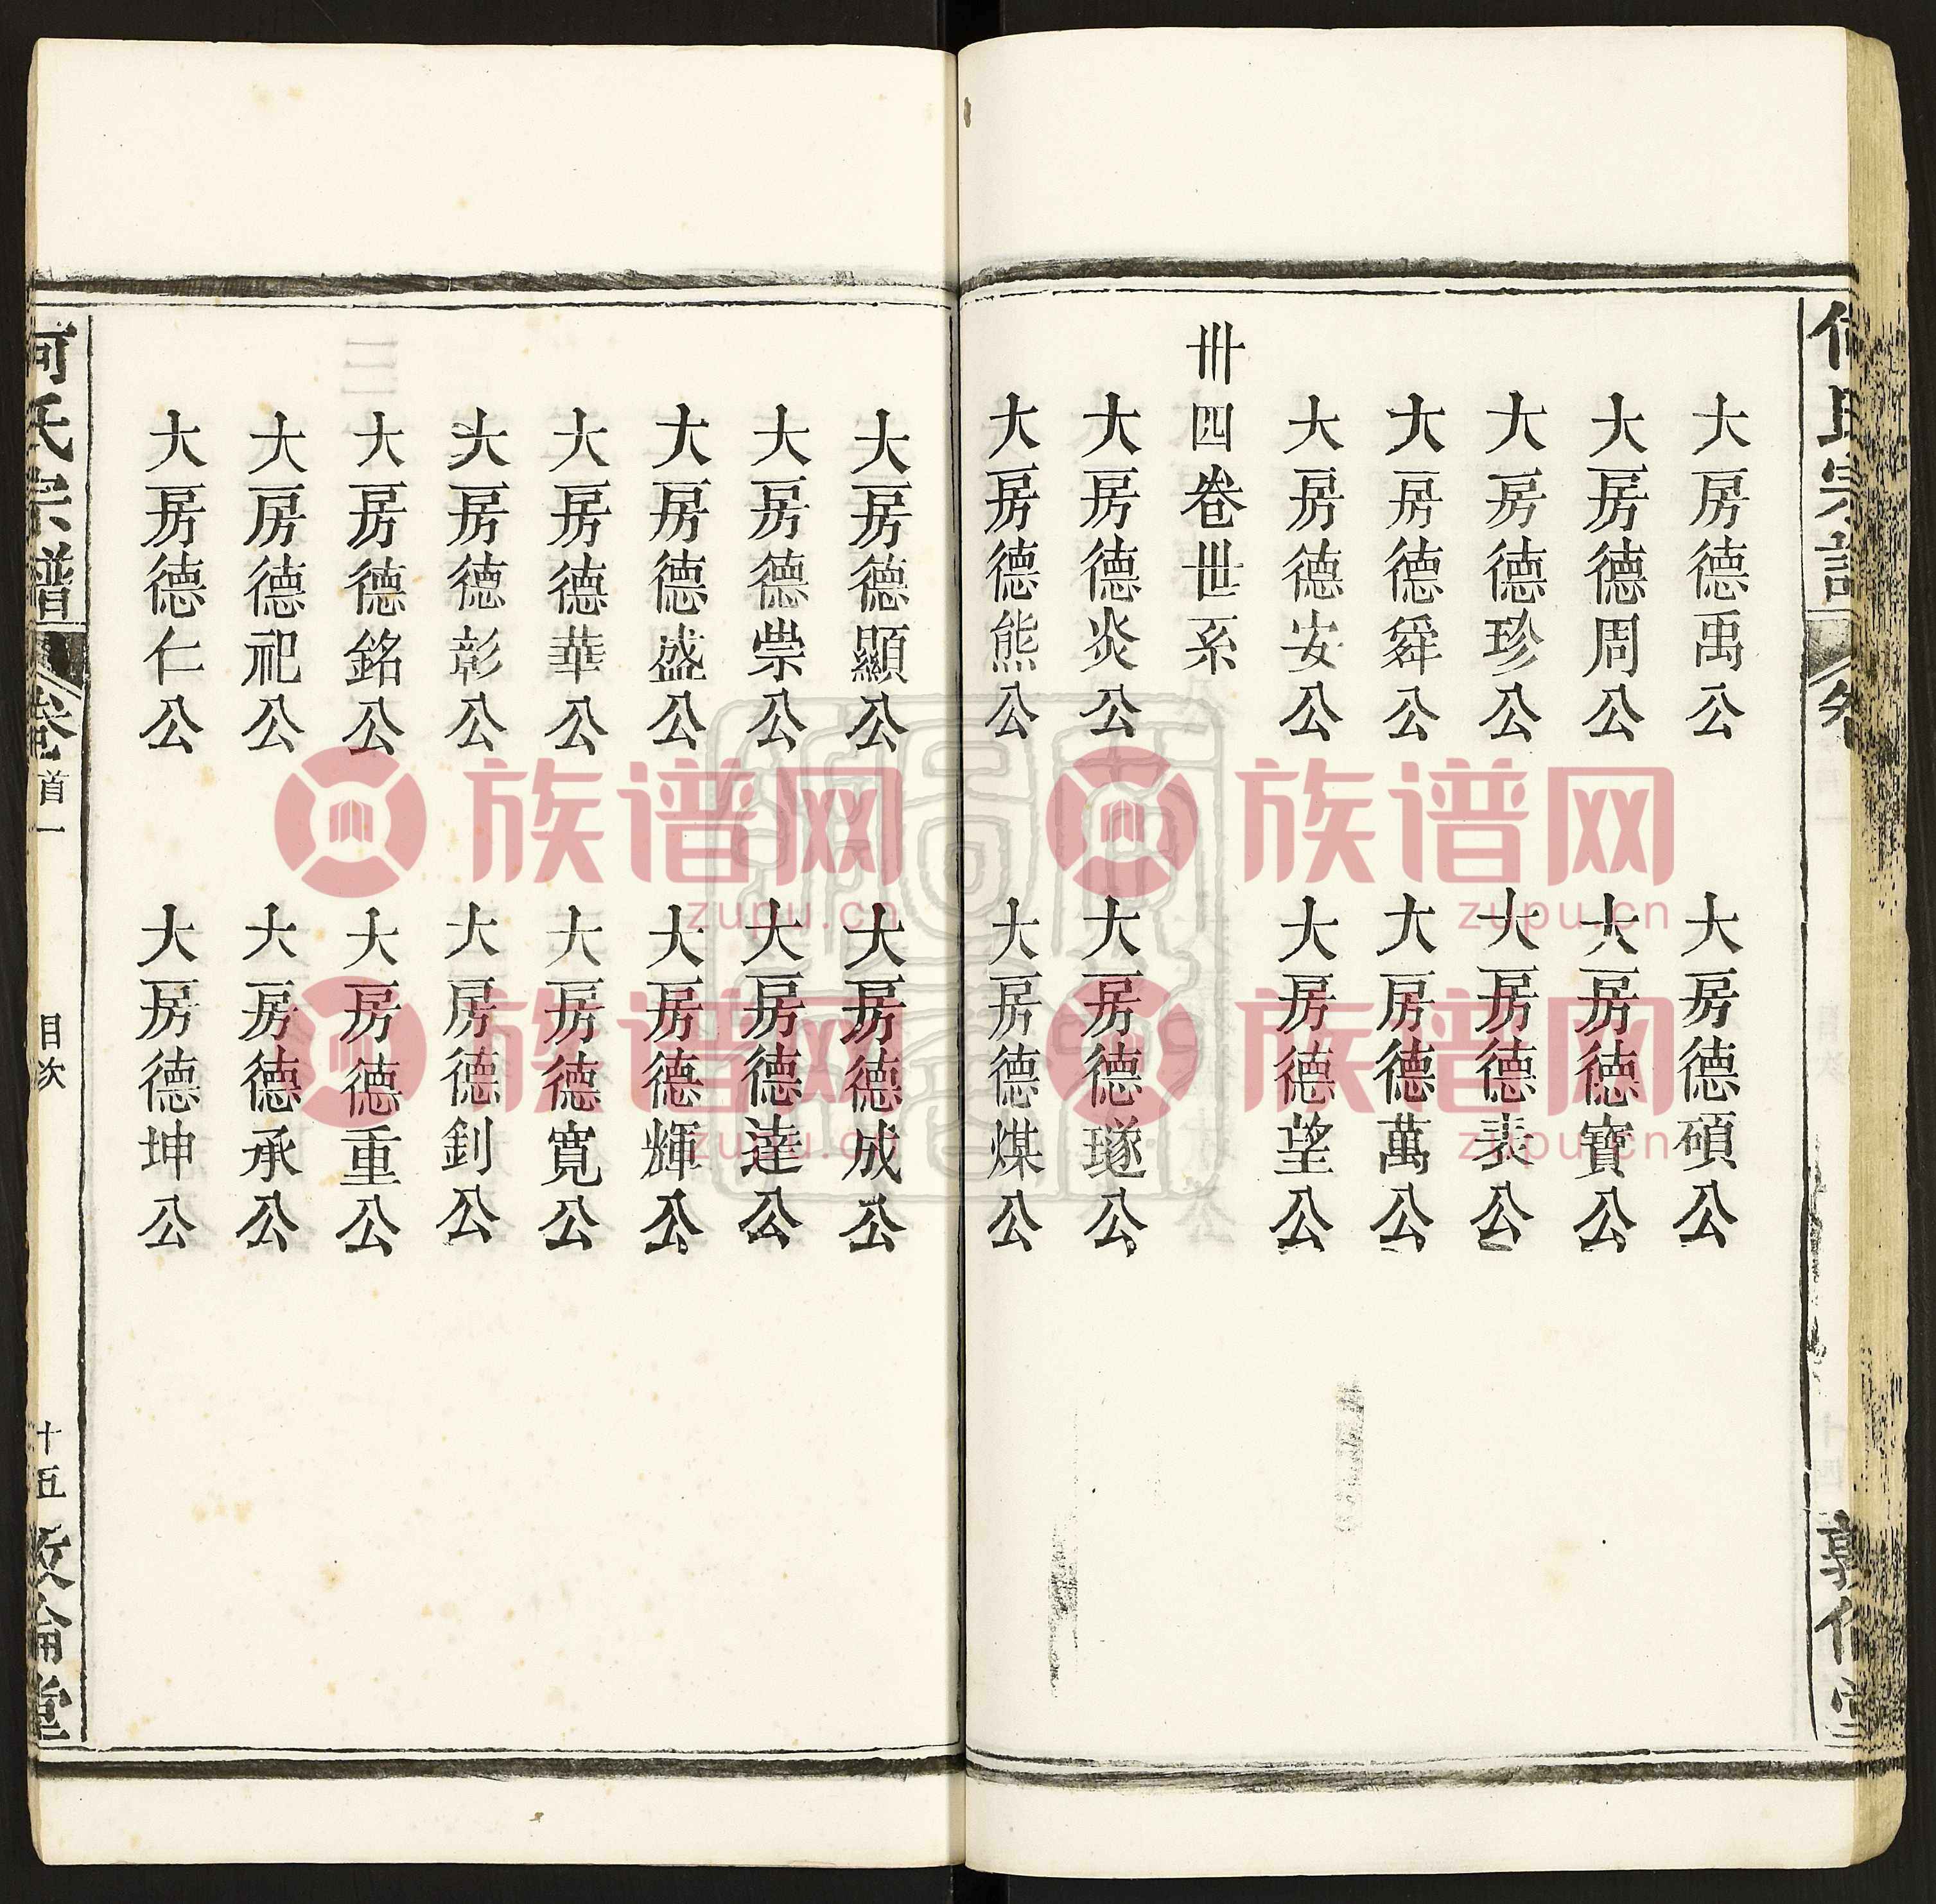 大房德禹公 大房德碩公
大房德周公 大房德寶公
大房德珍公 大房德表公
大房德舜公 大房德萬公
大房德安公 大房德望公
卌四卷世系
大房德炎公 大房德璲公
大房德熊公 大房德煤公
大房德顯公 大房德成公
大房德崇公 大房德達公
大房德盛公 大房德輝公
大房德華公 大房德寬公
大房德彰公 大房德釗公
大房德銘公 大房德重公
大房德祀公 大房德承公
大房德仁公 大房德坤公
何氏宗譜 卷首一 目次 十五 敦倫堂
族谱网
zupu.cn
族谱网
zupu.cn
族谱网
zupu.cn
族谱网
zupu.cn